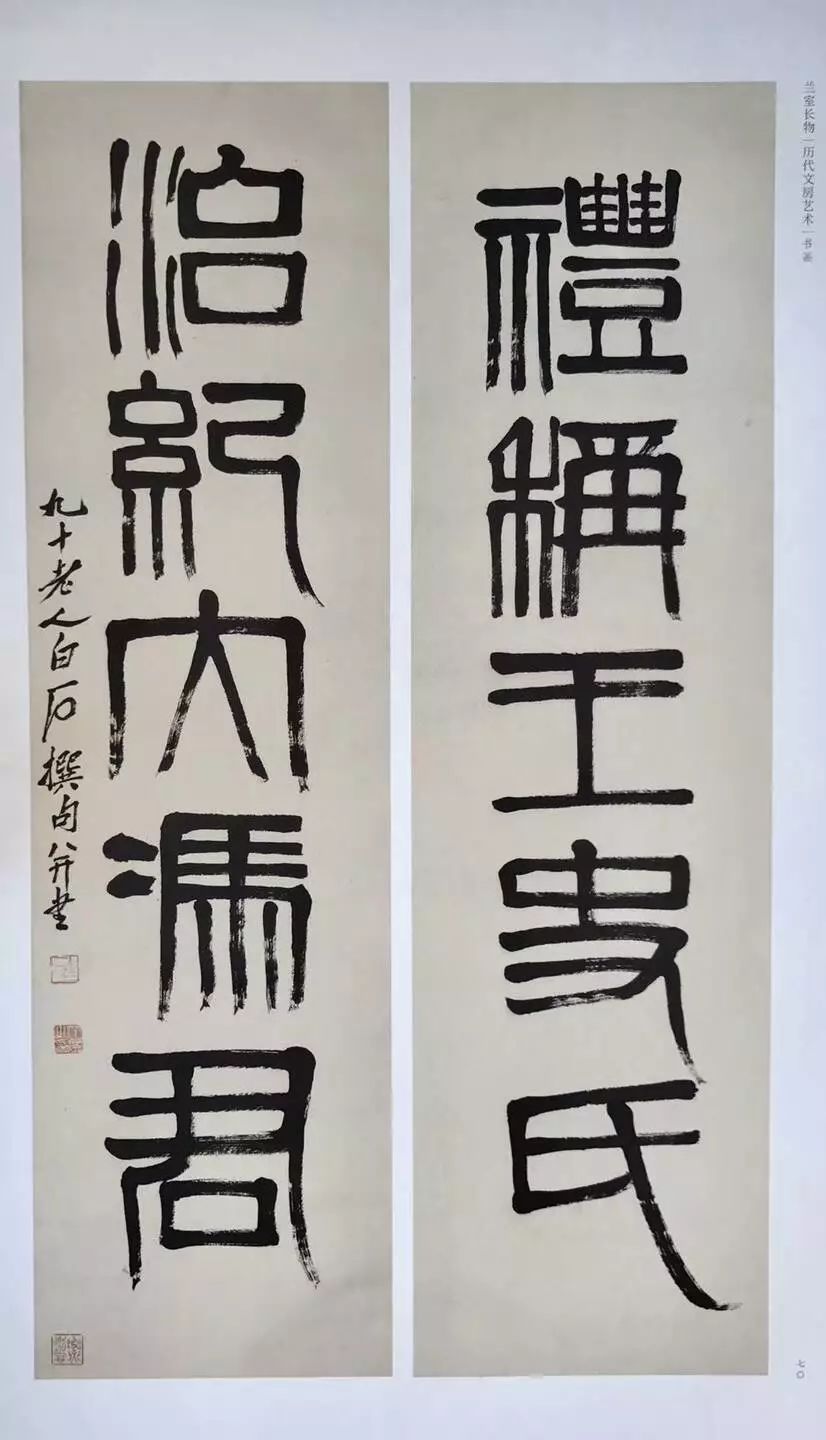 兰室长物|历代文房艺术|书画
禮稱王史氏
治紀大馮君
九十老人白石撰句并書
七〇